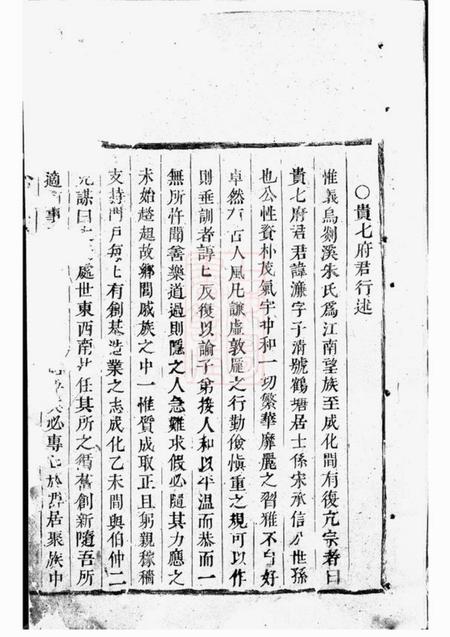 ○貴七府君行述
惟義烏剡溪朱氏爲江南望族至成化間有復亢宗者曰
貴七府君君諱濂字子清號鶴塘居士係宋承信 世孫
也公性資朴茂氣宇冲和一切繁華靡麗之習雅不 好
卓然有古人風凡謙虛敦厖之行勤儉愼重之規可以作
則垂訓者諄匕反復以諭子弟接人和以平温而恭而一
無所忤聞善樂道過則隱之人急難求假必隨其力應之
未始趑趄故鄉閭戚族之中一惟質成取正且躬親稼穡
支持門戶每匕有創基造業之志成化乙未間與伯仲二
兄謀曰 處世東西南北任其所之循舊創新隨吾所
適 事 必專 於羣居聚族中